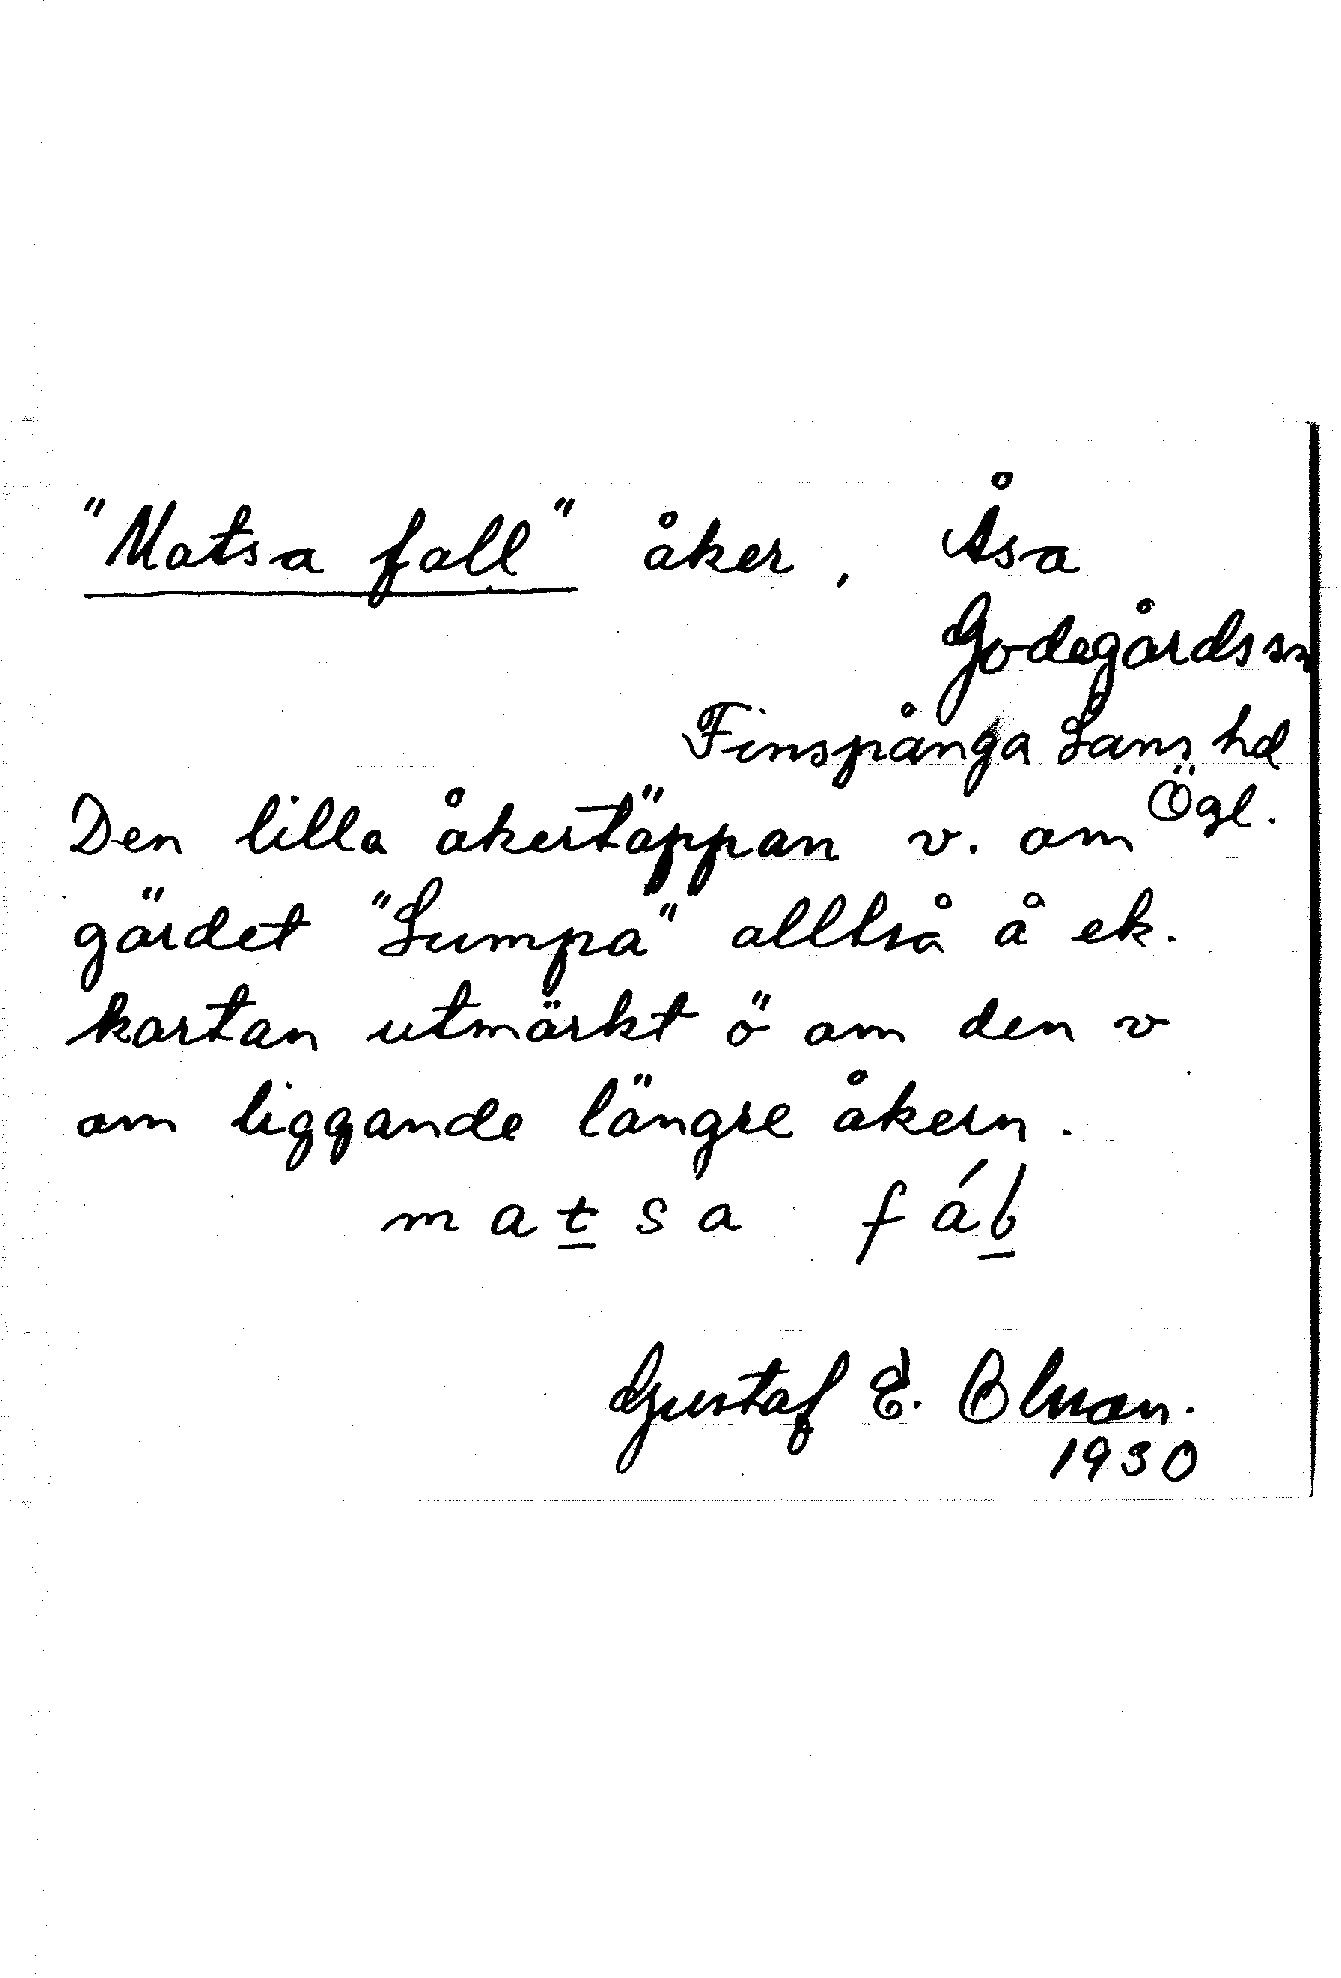 "Matsa fall" åker, Åsa
Godegårds sn
Finspånga Läns hd
Ögl.
Den lilla åkertäppan v. om
gärdet "Lumpa" alltså å ek.
kartan utmärkt ö om den v
om liggande längre åkern.
matsa fáƚ
Gustaf E.
1930